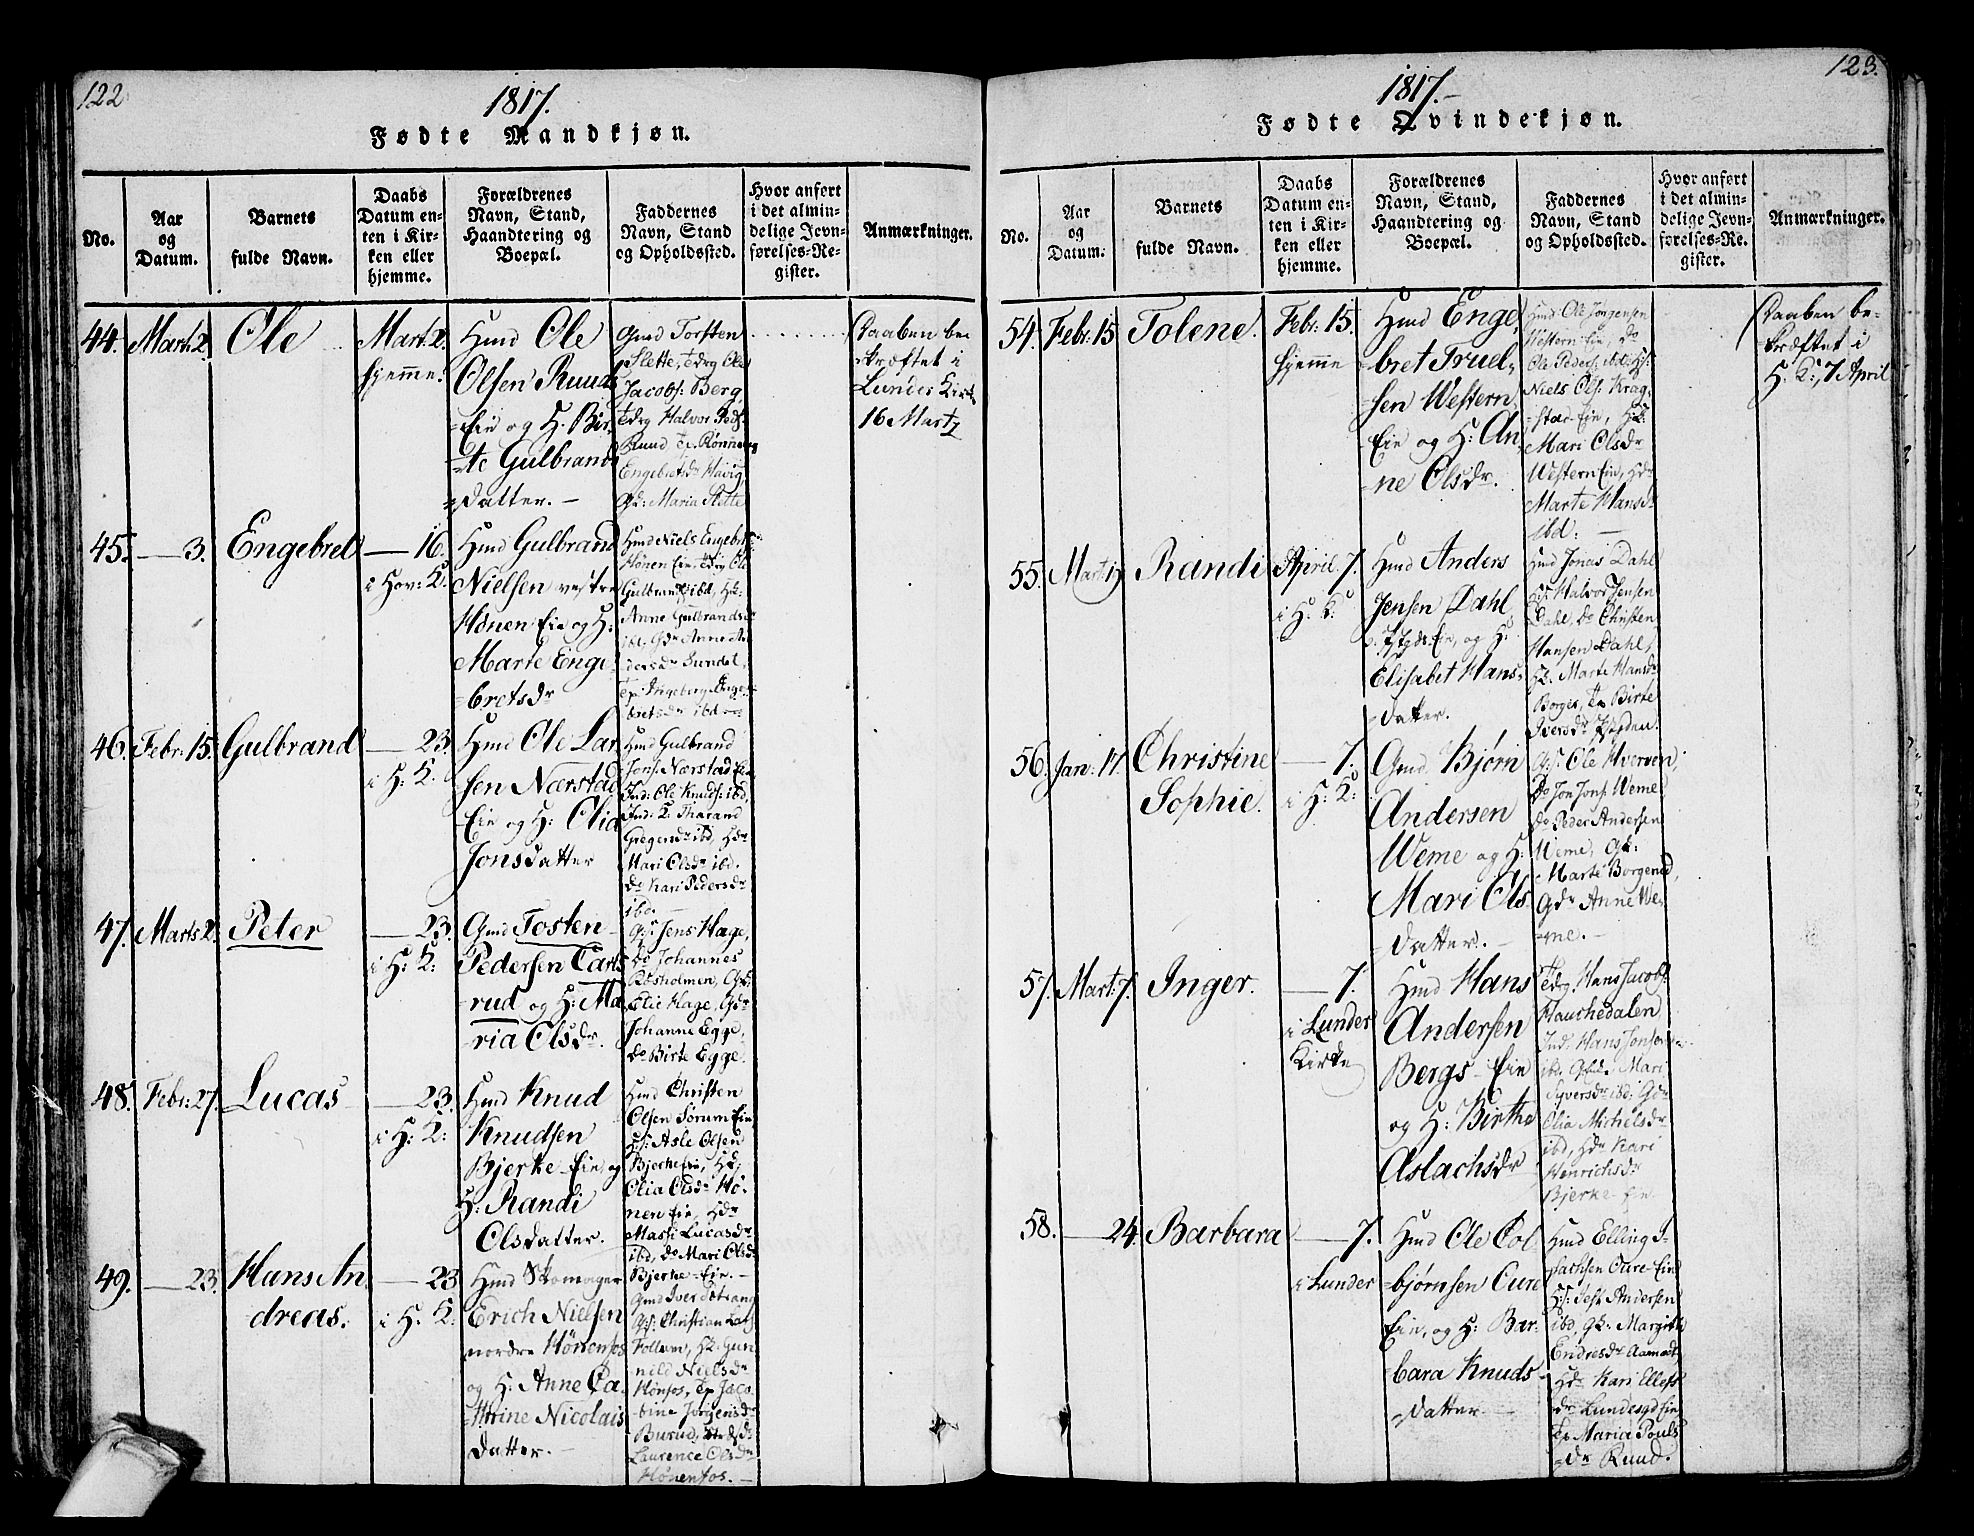 122
1817.
Fødte Mandkjøn.
No.
Aar
og
Datum.
Barnets
fulde Navn.
Daabs
Datum en-
ten i Kir-
ken eller
hjemme.
Forældrenes
Navn, Stand,
Haandtering og
Boepæl.
Faddernes
Navn, Stand
og Opholdssted.
Hvor anført
i det almin-
delige Jevn-
førelses-Re-
gister.
Anmærkninger.
44. Mart: 2.
Ole
Mart: 2.
hjemme.
Hmd Ole
Olsen Ruuds
-Eie og H. Bir-
-te Gulbrands
-datter. -
Gmd Torsten
Slette, Tdrg Ole
Jacobs: Berg,
Tdrg Halvor Peds:
Ruud Tp. Rønnaug
Engebretsdr Havig,
Gdr: Maria Slette
Daaben be-
-kræftet i
Lunder Kirke
16 Martz
45. — 3.
Engebret
— 16.
i Hov: K.
Hmd Gulbrand
Nielsen vestre
Hønen Eie og H:
Marte Enge-
-bretsdr
Hmd Niels Engebrets:
Hønen Eie, Tdrg Ole
Gulbrands: ibd, HK:
Anne Gulbrandsdr
ibd, Gdr Anne An-
dersdr Sundal,
Tp. Ingeborg Enge-
bretsdr ibd
46. Febr: 15.
Gulbrand
— 23.
i H: K.
Hmd Ole Lar-
sen Nærstad
-Eie og H: Olia
Jonsdatter
Hmd Gulbrand
Jons: Nærstad Eie
Ind: Ole Knuds: ibd,
Ind: K. Tharand
Gregersdr ibd, Hdr
Mari Olsdr ibd.
do Kari Pedersdr
ibd. —
47. Marts 2.
Peter
— 23.
i H: K:
Gmd Tosten
Pedersen Carls-
-rud og H: Ma-
-ria Olsdr.
Gs: Jens Hage,
do Johannes
Rosholmen, GK:
Elie Hage, Gdr
Johanne Egge,
do Birte Egge.
48. Febr: 27.
Lucas
— 23.
i H: K:
Hmd Knud
Knudsen
Bjerke-Eie og
H: Randi
Olsdatter.
Hmd Christen
Olsen Sørum Eie,
Hs: Asle Olsen
Bjerke Eie, HK,
Olia Olsdr Hø-
nen Eie, Hdr
Massi Lucasdr
ibd, do Mari Olsdr
Bjerke-Eie. -
49. — 23.
Hans An-
dreas.
— 23
i H. K:
Hmd Skomager
Erich Nielsen
nordre Hønenfos
og H: Anne Ca-
-thrine Nicolais
datter. -
Gmd Iver
Gs: Christian Lars:
Follum, HK: Gun-
nild Nielsdr
Hønfos, Tp Jaco-
-bine Jørgensdr
Burud,
Laurence Olsdr
Hønenfos. —
123.
1817.
Fødte Qvindekjøn.
No.
Aar
og
Datum.
Barnets
fulde Navn.
Daabs
Datum en-
ten i Kir-
ken eller
hjemme.
Forældrenes
Navn, Stand,
Haandtering og
Boepæl.
Faddernes
Navn, Stand
og Opholdssted.
Hvor anført
i det almin-
delige Jevn-
førelses-Re-
gister.
Anmærkninger.
54. Febr: 15
Tolene.
Febr: 15.
hjemme
Hmd Enge-
-bret Truel-
sen Western-
-Eie og H: An-
ne Olsdr.
Hmd Ole Jorgensen
Western-Eie, do
Ole Peders:
Niels Ols: Krag-
stad-Eie, HK:
Mari Olsdr
Western Eie, Hdr
Marte Hansdr
ibd: —
Daaben be-
kræftet i
H. K:, 7 April
55. Mart: 19
Randi
April 7.
i H. K:
Hmd Anders
Jensen Dahl,
og H:
Elisabet Hans-
-datter.
Hmd Jonas Dahl
Hs: Halvor Jensen
Dahl, do Christen
Hansen Dahl,
HK. Marte Hansdr
Borger, Tp Birte
Iversdr
56. Jan: 17.
Christine
Sophie.
— 7.
i H: K:
Gmd. Bjørn
Andersen
Weme og H:
Mari Ols-
-datter. -
Gs: Ole Hverven,
do Jon Jons: Weme
do Peder Andersen
Weme, GK:
Marte Borgerud,
Gdr Anne We-
-me. -
57. Mart: 7.
Inger.
— 7.
i Lunder
Kirke
Hmd Hans
Andersen
Bergs-Eie
og H: Birthe
Aslachsdr
Tdrg. Hans Jacobs:
Hauchedalen
Ind. Hans Jonsen
ibd. Mari
Syversdr ibd, Gdr
Olia Michelsdr
ibd, Hdr Kari
Henrichsdr
Bjerke-Eie.
58. — 24.
Barbara
— 7.
i Lunder
Hmd Ole Col-
-bjørnsen Cure
Eie, og H: Bar-
-bara Knuds-
-datter. -
Hmd Elling I-
sachsen Cure-Eie
Hs: Jens Andersen
ibd, GK: Margitte
Endresdr Aamodt,
Hdr Kari Ellefs
dr Lundesgd Eie,
Tp Maria Pouls
-dr Ruud.